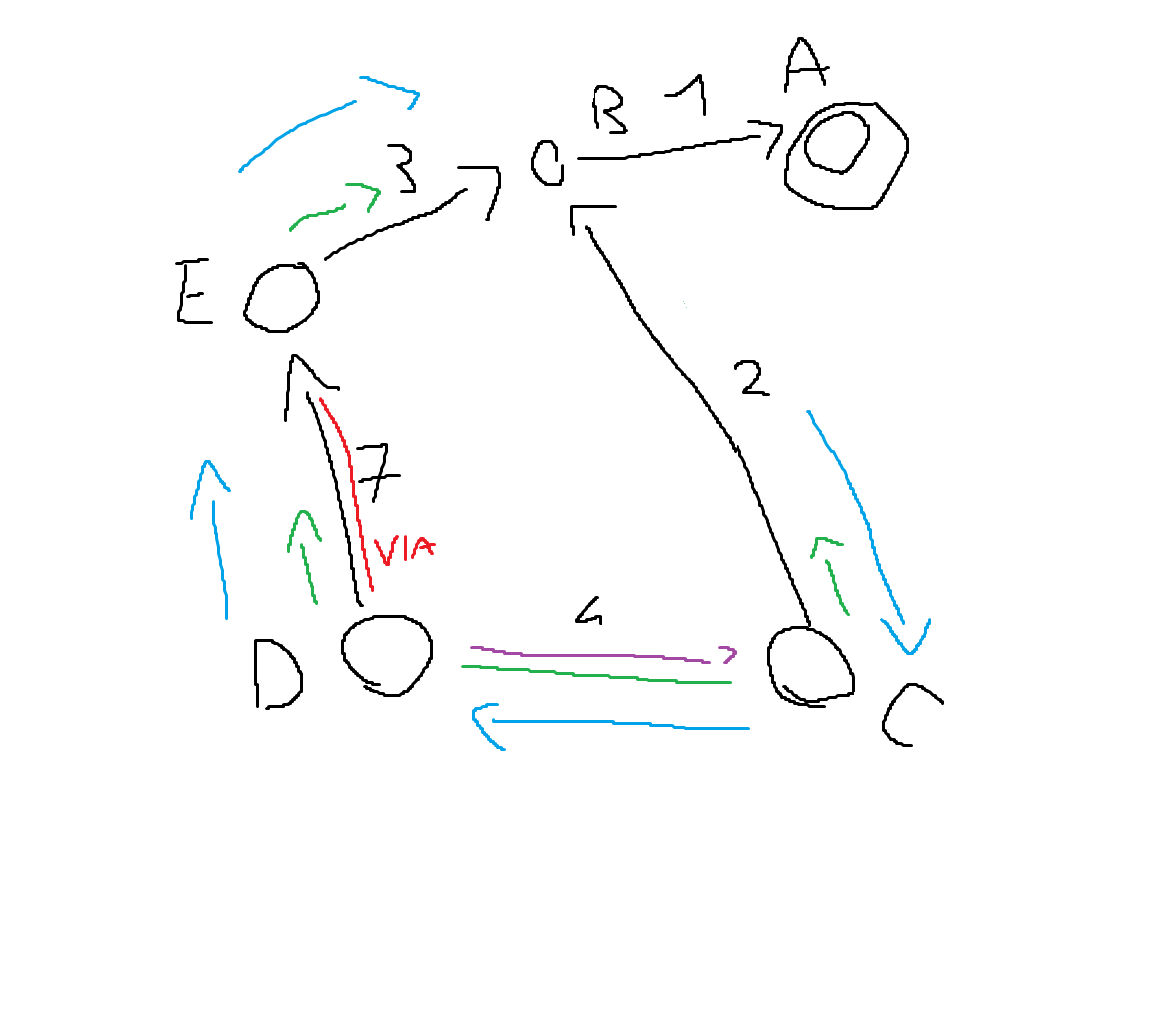 A
B 1
3
E
2
7
VIA
4
D
C